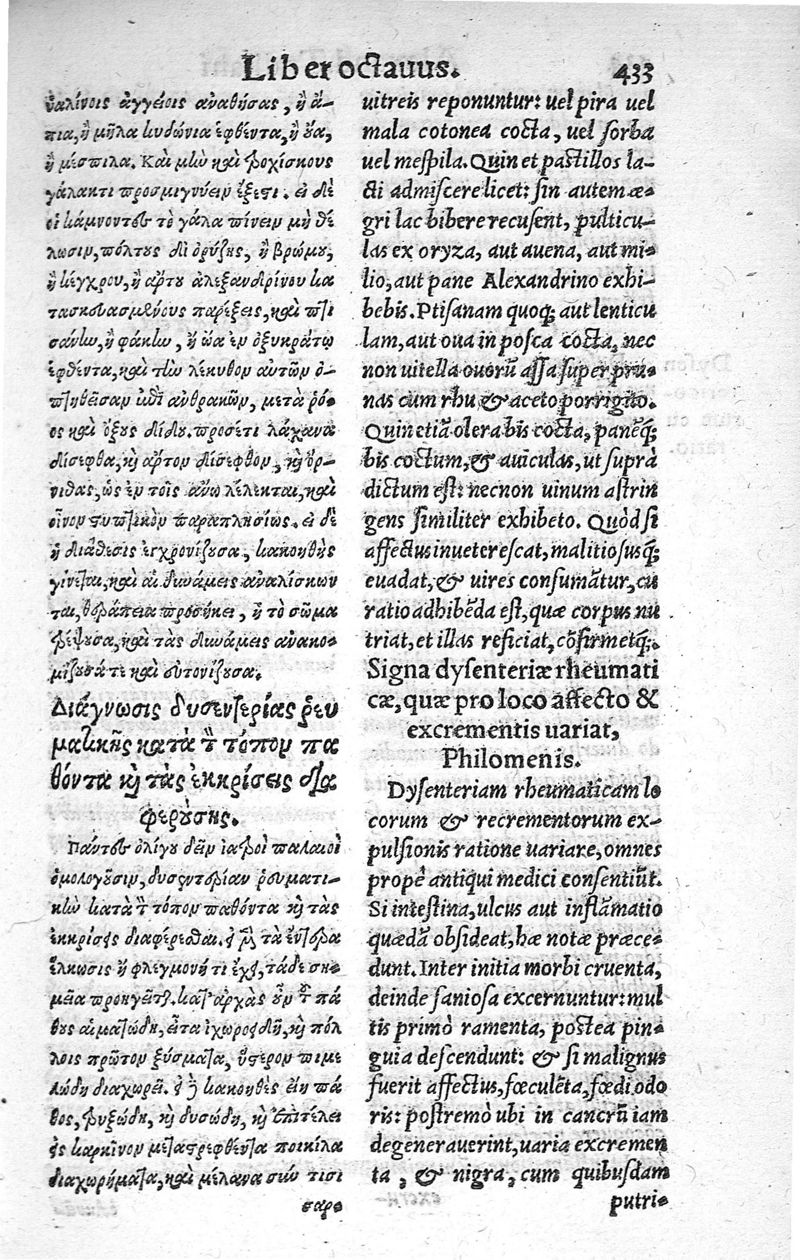 Liber octauus. 433
ὑαλίνοις ἀγγείοις ἀναθήσας, ἢ ἄ-
πια, ἢ μῆλα κυδώνια ἑφθέντα, ἢ ὄα,
ἢ μέσπιλα. Καὶ μὴν καὶ τροχίσκους
γάλακτι προσμιγνύειν ἔξεστι. εἰ δὲ
οἱ κάμνοντες τὸ γάλα πίνειν μὴ θέ
λωσιν, πόλτους δι ὀρύζης, ἢ βρώμου,
ἢ κέγχρου, ἢ ἄρτου ἀλεξανδρίνου κα
τασκευασμένους παρέξεις, καὶ πτι
σάνην, ἢ φακὴν, ἢ ὠὰ ἐν ὀξυκράτῳ
ἑφθέντα, καὶ τὴν λέκυθον αὐτῶν ὀ-
πτηθεῖσαν ἐπὶ ἀνθρακῶν, μετὰ ῥό-
ος καὶ ὄξους δίδου. προσέτι λάχανα
δίσεφθα, καὶ ἄρτον δίσεφθον, καὶ ὄρ-
νιθας, ὡς ἐν τοῖς ἄνω λέλεκται, καὶ
οἶνον στυπτικὸν παραπλησίως. εἰ δὲ
ἡ διάθεσις ἐγχρονίζουσα, κακοηθὴς
γίνεται, καὶ αἱ δυνάμεις ἀναλίσκων
ται, θεράπεια προσήκει, ἡ τὸ σῶμα
τρέψουσα, καὶ τὰς δυνάμεις ἀνακο-
μίζουσά τε καὶ εὐτονίζουσα.
Διάγνωσις δυσεντερίας ῥευ
ματικῆς κατὰ τὸν τόπον πα
θόντα καὶ τὰς ἐκκρίσεις δια
φερούσης.
Πάντες ὀλίγου δεῖν ἰατροὶ παλαιοὶ
ὁμολογοῦσιν, δυσεντερίαν ῥευματι-
κὴν κατὰ τὸν τόπον παθόντα καὶ τὰς
ἐκκρίσεις διαφέρεσθαι. εἰ μὲν τὰ ἔντερα
ἕλκωσις ἢ φλεγμονή τι ἔχει, τάδε ση-
μεῖα προηγεῖται. κατ' ἀρχὰς οὖν τοῦ πά
θους αἱματώδη, εἶτα ἰχωροειδῆ, καὶ πολ
λοῖς πρῶτον ξύσματα, ὕστερον πιμε
λώδη διαχωρεῖ. εἰ δὲ κακοηθὲς εἴη πά
θος, τρυξώδη, καὶ δυσώδη, καὶ ἐπιτέλει
εἰς καρκῖνον μεταστρεφθέντα ποικίλα
διαχωρήματα, καὶ μέλανα σύν τισι
σαρ-
uitreis reponuntur: uel pira uel
mala cotonea cocta, uel sorba
uel mespila. Quin et pastillos la-
cti admiscere licet: sin autem æ-
gri lac bibere recusent, pulticu-
las ex oryza, aut auena, aut mi-
lio, aut pane Alexandrino exhi-
bebis. Ptisanam quoq; aut lenticu
lam, aut oua in posca cocta, nec
non uitella ouorū assa super pru-
nas cum rhu & aceto porrigito.
Quin etiā olera bis cocta, panēq;
bis coctum, & auiculas, ut suprà
dictum est: necnon uinum astrin
gens similiter exhibeto. Quòd si
affectus inueterescat, malitiosusq;
euadat, & uires consumātur, cu
ratio adhibēda est, quæ corpus nu
triat, et illas reficiat, cōfirmetq;.
Signa dysenteriæ rheumati
cæ, quæ pro loco affecto &
excrementis uariat,
Philomenis.
Dysenteriam rheumaticam lo
corum & recrementorum ex-
pulsionis ratione uariare, omnes
propè antiqui medici consentiūt.
Si intestina, ulcus aut inflāmatio
quædā obsideat, hæ notæ præce-
dunt. Inter initia morbi cruenta,
deinde saniosa excernuntur: mul
tis primò ramenta, postea pin-
guia descendunt: & si malignus
fuerit affectus, fœculēta, fœdi odo
ris: postremò ubi in cancrū iam
degenerauerint, uaria excremen
ta, & nigra, cum quibusdam
putri-